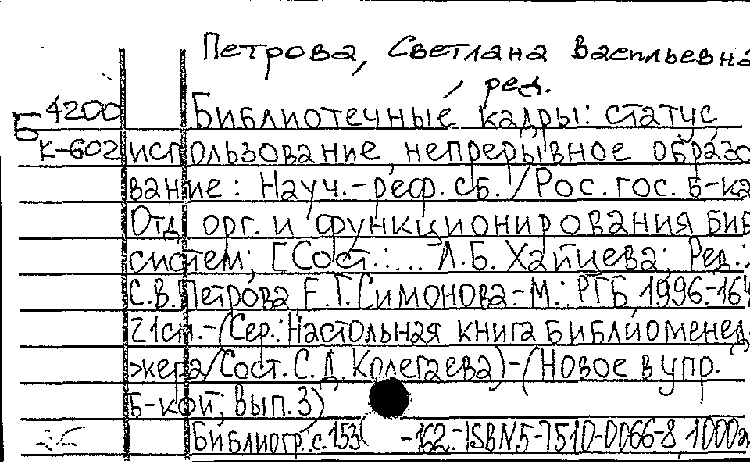 Петрова, Светлана Васильевна
ред.
Б 4200 Библиотечные кадры: статус,
К-602 использование, непрерывное образо
вание: Науч.-реф.сб. / Рос.гос.б-ка
Отд. орг. и функционирования биб
систем; [Сост.:... Л.Б. Хайцева; Ред.:
С.В.Петрова Е.Г.Симонова-М.: РГБ, 1996.-164
21см.-(Сер.:Настольная книга библиоменед
жера/Сост. С.Д. Колегаева)-(Новое в упр.
б-кой; Вып.3)
Библиогр.с.153 -162.-ISBN5-7510-0066-8, 1000э